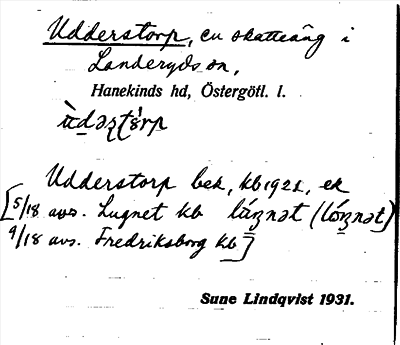 Udderstorp, en skatteäng i
Landeryds sn,
Hanekinds hd, Östergötl. l.
Udderstorp bek, kb 1921, ek
[5/18 avs. Lugnet kb
9/18 avs. Fredriksborg kb]
Sune Lindqvist 1931.